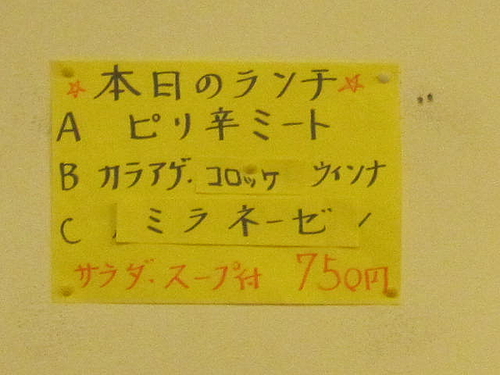 ☆本日のランチ☆
A ピリ辛ミート
B カラアゲ.コロッケ ウィンナ
C ミラネーゼ
サラダ.スープ付 750円